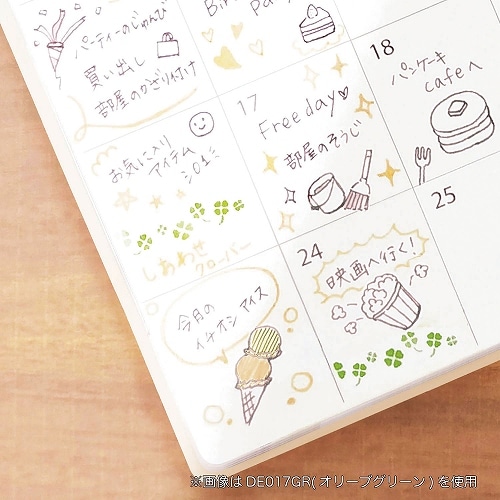 パーティーのじゅんび
買い出し
部屋のかざり付け
17
Free day
部屋のそうじ
18
パンケーキ
cafeへ
お気に入り
アイテム
しあわせ
クローバー
24
映画へ行く!
25
今月の
イチオシ アイス
※画像はDE017GR(オリーブグリーン)を使用